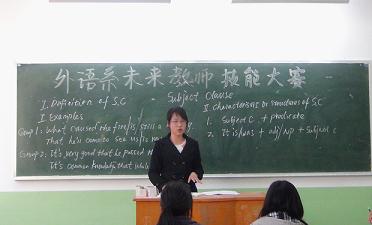 外语系未来教师技能大赛
Subject Clause
I. Definition of S.C
II. Examples
Group 1: What caused the fire is still a
That he's come to see us is
Group 2: It's very good that he passed
It's common knowledge that
II. Characteristics or structures of S.C
1. Subject C. + predicate
2. It is/was + adj/NP + Subject C